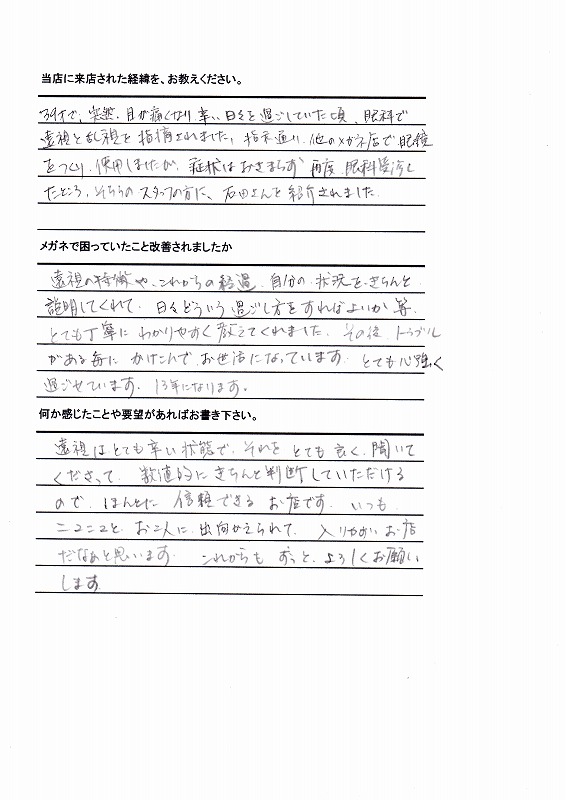 当店に来店された経緯を、お教えください。
39才で、突然、目が痛くなり 辛い日々を過ごしていた頃、眼科で
遠視と乱視を指摘されました。指示通り、他のメガネ店で眼鏡
をつくり、使用しましたが、症状はおさまらず 再度、眼科受診し
たところ、そちらのスタッフの方に、石田さんを紹介されました。
メガネで困っていたこと改善されましたか
遠視の特徴や、これからの経過、自分の状況をきちんと
説明してくれて、日々どういう過ごし方をすればよいか等、
とても丁寧にわかりやすく教えてくれました。その後、トラブル
がある毎に かけこんで、お世話になっています。とても心強く
過ごせています。13年になります。
何か感じたことや要望があればお書き下さい。
遠視はとても辛い状態で、それを とても良く、聞いて
くださって、数値的にきちんと判断していただける
ので、ほんとに 信頼できる お店です。いつも
ニコニコと、お二人に、出向かえられて、入りやすいお店
だなあと思います。これからも ずっと、よろしくお願い
します。